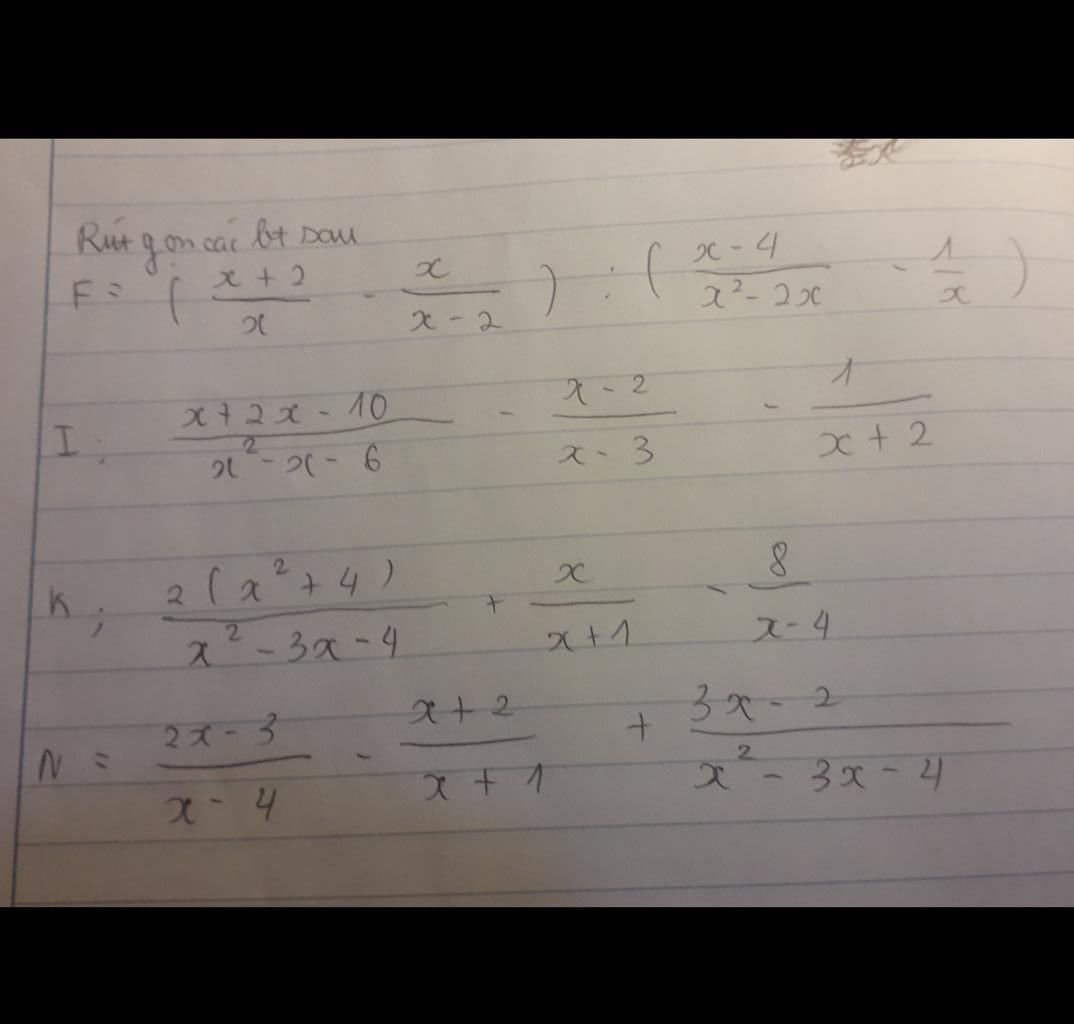 Rút gọn các bt sau
F = ( (x + 2)/x - x/(x - 2) ) : ( (x - 4)/(x² - 2x) - 1/x )
I : (x + 2x - 10)/(x² - x - 6) - (x - 2)/(x - 3) - 1/(x + 2)
K ; 2(x² + 4)/(x² - 3x - 4) + x/(x + 1) - 8/(x - 4)
N = (2x - 3)/(x - 4) - (x + 2)/(x + 1) + (3x - 2)/(x² - 3x - 4)